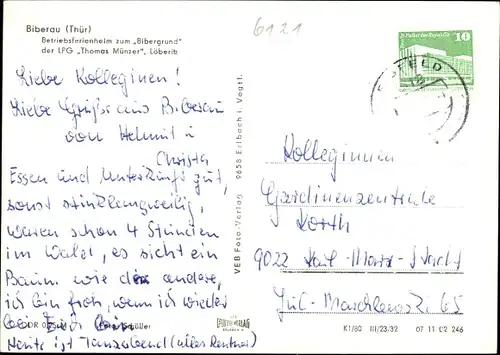 Biberau (Thür)
Betriebsferienheim zum „Bibergrund"
der LPG „Thomas Münzer", Löberitz
6121
10
Liebe Kolleginen!
Liebe Grüße aus Biberau
von Helmut u
Christa
Essen und Unterkunft gut,
sonst stinklangweilig,
waren schon 4 Stunden
im Wald, es sieht ein
Baum wie der andere,
ich bin froh, wenn ich wieder
bei Euch bin
Heute ist Tanzabend (alles Rentner)
VEB Foto-Verlag 9658 Erlbach i. Vogtl.
Kolleginnen
Gardinenzentrale
Korth
9022 Karl-Marx-Stadt
65
K1/80 III/23/32 07 11 02 246